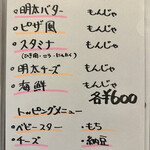 ・明太バター もんじゃ
・ピザ風 もんじゃ
・スタミナ もんじゃ
・明太チーズ もんじゃ
・海鮮 もんじゃ
各¥600
トッピングメニュー
・ベビースター ・もち
・チーズ ・納豆